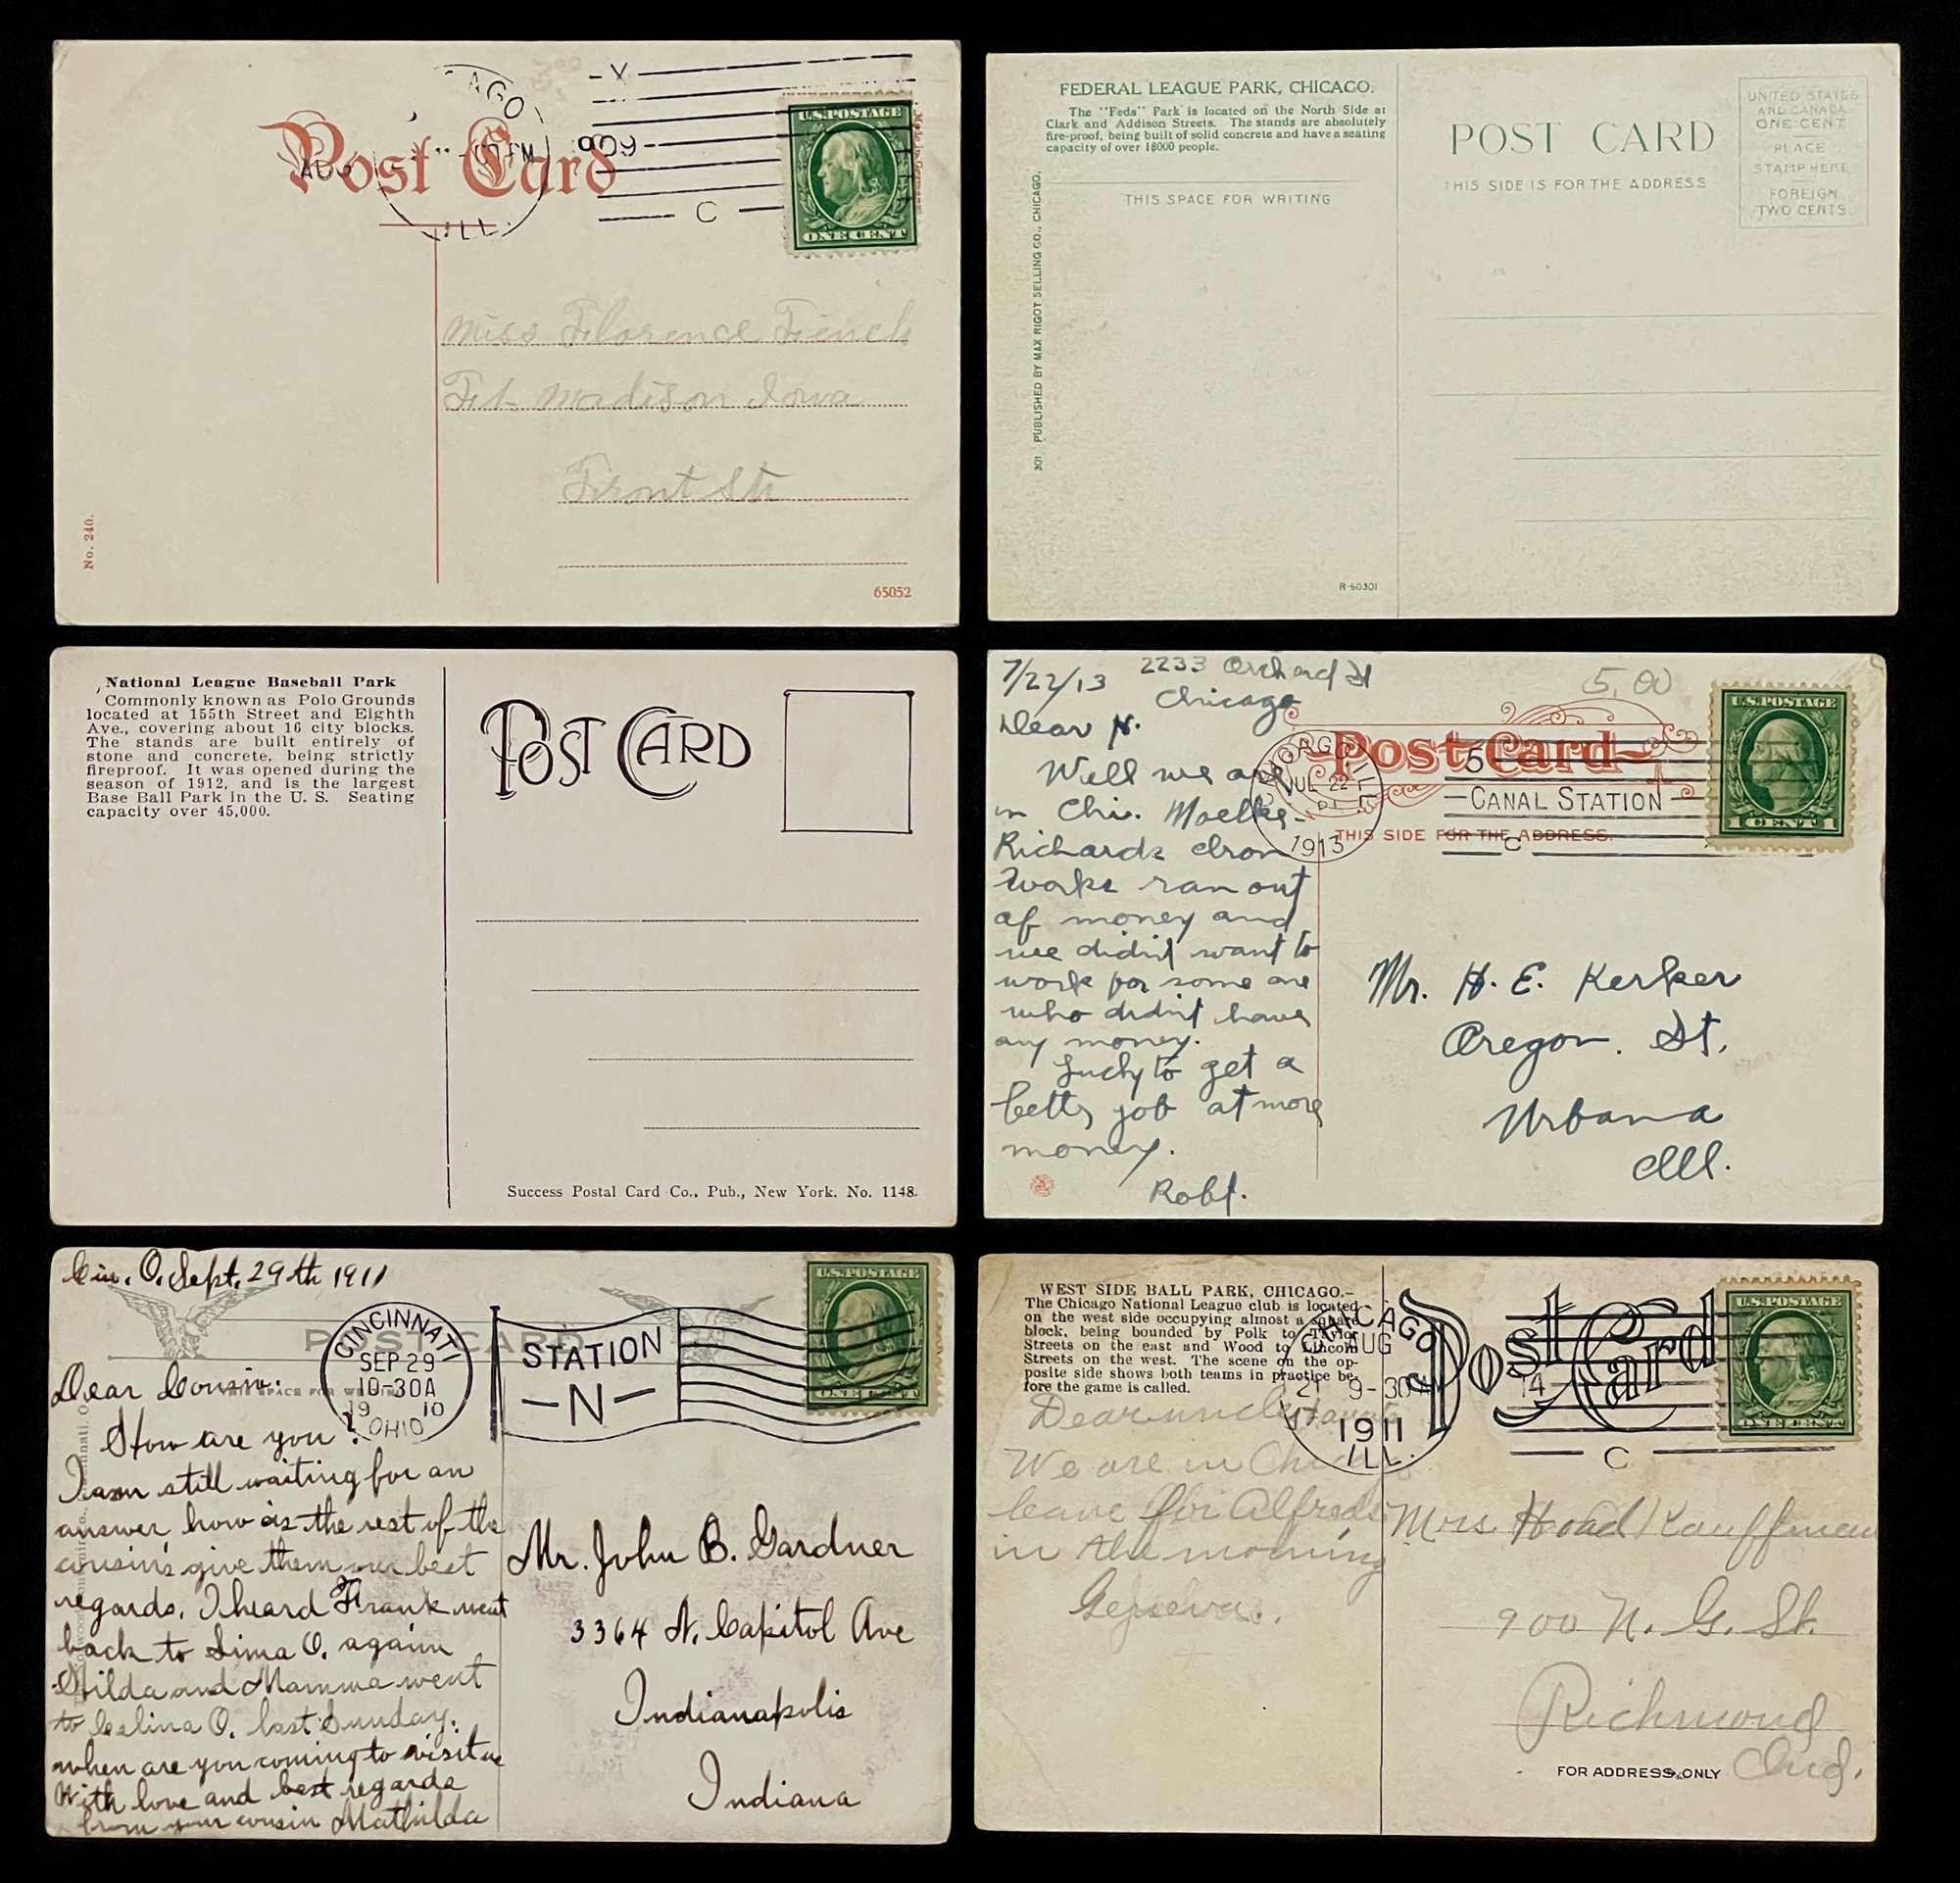 AGO
AUG
PM
909
ILL.
C
Post Card
Made in Germany
U.S.POSTAGE
ONE CENT
Miss Florence French
Ft. Madison Iowa
Front Str
No. 240.
65052
FEDERAL LEAGUE PARK, CHICAGO.
The "Feds" Park is located on the North Side at
Clark and Addison Streets. The stands are absolutely
fire-proof, being built of solid concrete and have a seating
capacity of over 18000 people.
THIS SPACE FOR WRITING
301 PUBLISHED BY MAX RIGOT SELLING CO., CHICAGO.
R-60301
POST CARD
THIS SIDE IS FOR THE ADDRESS
UNITED STATES
AND CANADA
ONE CENT
PLACE
STAMP HERE
FOREIGN
TWO CENTS
National League Baseball Park
Commonly known as Polo Grounds
located at 155th Street and Eighth
Ave., covering about 16 city blocks.
The stands are built entirely of
stone and concrete, being strictly
fireproof. It was opened during the
season of 1912, and is the largest
Base Ball Park in the U. S. Seating
capacity over 45,000.
POST CARD
Success Postal Card Co., Pub., New York. No. 1148.
7/22/13 2233 Orchard St
Chicago
Dear H.
Well we are
in Chi. Moelke-
Richards Iron
Works ran out
of money and
we didn't want to
work for some one
who didn't have
any money.
Lucky to get a
better job at more
money.
Robt.
5.00
Post Card
THIS SIDE FOR THE ADDRESS.
CHICAGO, ILL.
JUL 22
1913
5
CANAL STATION
C
U.S.POSTAGE
1 CENT 1
Mr. H. E. Kerker
Oregon St.
Urbana
Ill.
Cin. O. Sept. 29th 1911
POST CARD
Dear Cousin:
How are you?
I am still waiting for an
answer how is the rest of the
cousin's give them our best
regards. I heard Frank went
back to Lima O. again
Hilda and Mamma went
to Celina O. last Sunday.
when are you coming to visit us
With love and best regards
from your cousin Mathilda
CINCINNATI
SEP 29
10-30A
19 10
OHIO
STATION
-N-
U.S.POSTAGE
ONE CENT
Mr. John B. Gardner
3364 N. Capitol Ave
Indianapolis
Indiana
WEST SIDE BALL PARK, CHICAGO.-
The Chicago National League club is located
on the west side occupying almost a square
block, being bounded by Polk to Taylor
Streets on the east and Wood to Lincoln
Streets on the west. The scene on the op-
posite side shows both teams in practice be-
fore the game is called.
Dear uncle
We are in Chi
leave for Alfreds
in the morning
Geneva.
Post Card
CHICAGO
AUG
21 9-30A
1911
ILL.
14
C
U.S.POSTAGE
ONE CENT
Mrs Hoad Kauffman
900 N. G. St.
Richmond
Ind.
FOR ADDRESS ONLY